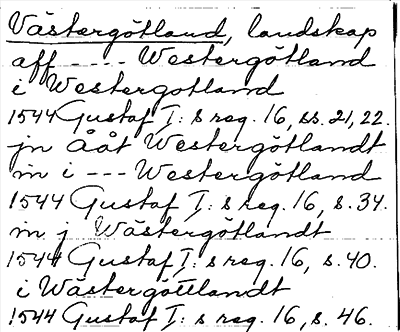 Västergötland, landskap
aff ---- Westergötland
i Westergotland
1544 Gustaf I: s reg. 16, ss. 21, 22.
jn Ååt Westergötlandt
in i --- Westergötland
1544 Gustaf I: s reg. 16, s. 34.
in j Wästergötlandt
1544 Gustaf I: s reg. 16, s. 40.
i Wästergöttlandt
1544 Gustaf I: s reg. 16, s. 46.